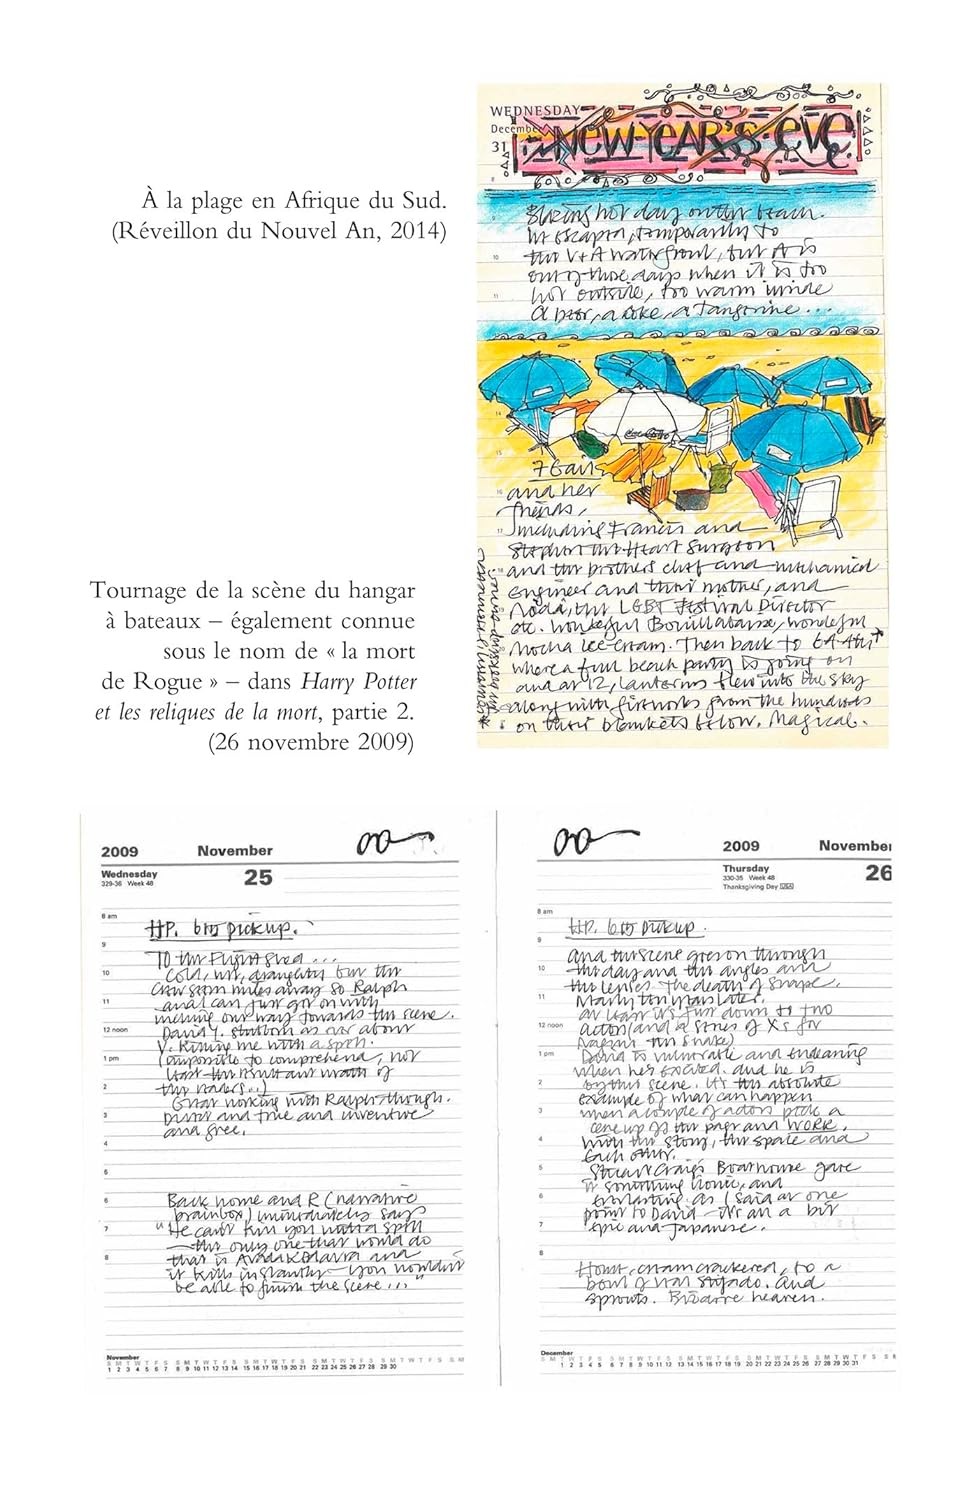 À la plage en Afrique du Sud.
(Réveillon du Nouvel An, 2014)
WEDNESDAY
December
31
NEW YEAR'S EVE
Blazing hot day on the beach.
We escaped, temporarily to
the V+A waterfront, but it is
one of those days when it is too
hot outside, too warm inside
A beer, a coke, a tangerine...
7 Gail
and her
friends,
including Francis and
Stephen the Heart Surgeon
and the brothers chef and mechanical
engineer and their mother, and
Nodi, the LGBT Festival Director
etc. Wonderful Bouillabaisse, wonderful
mocha ice-cream. Then back to
where a full beach party is going on
and at 12, lanterns flew into the sky
along with fireworks from the hundreds
on their blankets below. Magical.
Tournage de la scène du hangar
à bateaux – également connue
sous le nom de « la mort
de Rogue » – dans Harry Potter
et les reliques de la mort, partie 2.
(26 novembre 2009)
2009 November
Wednesday 25
329-36 Week 48
8 am
HP. 6.15 pickup.
9
To the Flight Shed ...
10
Cold, wet, draughty but the
crew seem miles away so Ralph
11
and I can just get on with
inching our way towards the scene.
12 noon
David Y. stubborn as ever about
V. killing me with a spell.
1 pm
(Impossible to comprehend, not
least the resultant wrath of
2
the readers...)
Great working with Ralph, though.
3
Direct and true and inventive
and free.
4
5
6
Back home and R (narrative
brainbox) immediately says
7
"He can't kill you with a spell
– the only one that would do
8
that is Avada Kedavra and
it kills instantly – you wouldn't
be able to finish the scene..."
November
S M T W T F S S M T W T F S S M T W T F S S M T W T F S S M T W T F S S M
1 2 3 4 5 6 7 8 9 10 11 12 13 14 15 16 17 18 19 20 21 22 23 24 25 26 27 28 29 30
2009 November
Thursday 26
330-35 Week 48
Thanksgiving Day USA
8 am
HP. 6.15 pickup.
9
and the scene goes on through
10
the day and the angles and
the lenses. The death of Snape.
11
Nearly ten years later.
At least it's just down to two
12 noon
actors (and a series of Xs for
Nagini the snake)
1 pm
David is vulnerable and endearing
when he's excited. And he is
2
by this scene. It's the absolute
example of what can happen
3
when a couple of actors pick a
scene up off the page and WORK.
4
with the story, the space and
each other.
5
Stuart Craig's Boathouse gave
it something ironic, and
6
everlasting. As I said at one
point to David – it's all a bit
7
epic and Japanese.
8
Home, cream crackered, to a
bowl of veal stufado. And
sprouts. Bizarre heaven.
December
S M T W T F S S M T W T F S S M T W T F S S M T W T F S S M T W T F S S
1 2 3 4 5 6 7 8 9 10 11 12 13 14 15 16 17 18 19 20 21 22 23 24 25 26 27 28 29 30 31